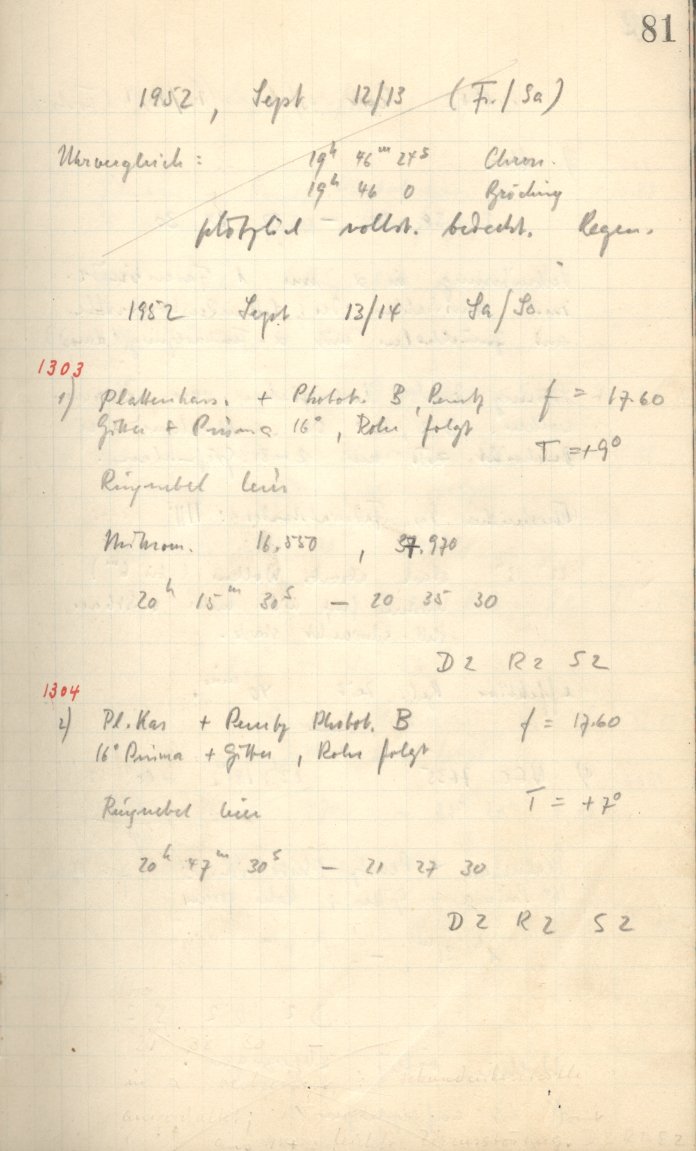 81
1952, Sept 12/13 (Fr./Sa)
Uhrvergleich: 19h 46m 24s Chron.
19h 46 0 Bröcking
plötzlich vollst. bedeckt. Regen.
1952 Sept 13/14 Sa/So.
1303
1) Plattenkass. + Photok. B, f = 17.60
Gitter + Prisma 16°, Rohr folgt
T = +9°
Ringnebel Leier
Mikrom. 16.550, 37.970
20h 15m 30s — 20 35 30
D2 R2 S2
1304
2) Pl. Kas + Photok. B f = 17.60
16° Prisma + Gitter, Rohr folgt
Ringnebel Leier T = +7°
20h 47m 30s — 21 27 30
D2 R2 S2